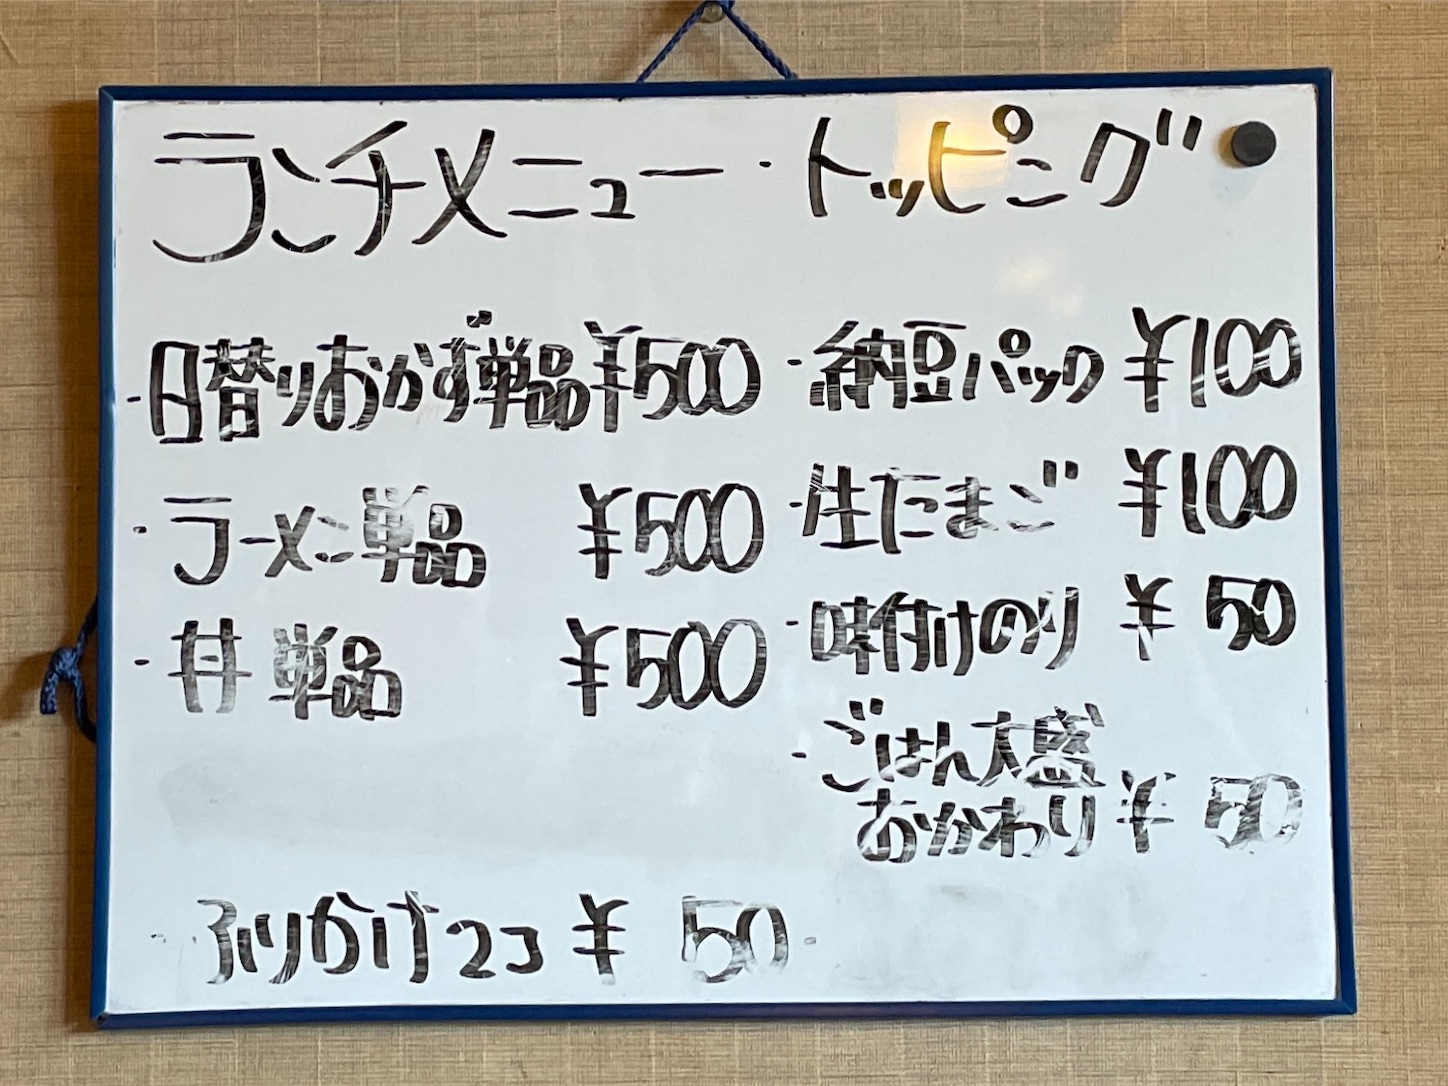 ランチメニュー・トッピング
・日替りおかず単品¥500
・ラーメン単品 ¥500
・丼単品 ¥500
・納豆パック ¥100
・生たまご ¥100
・味付けのり ¥50
・ごはん大盛
おかわり ¥50
・ふりかけ2コ ¥50